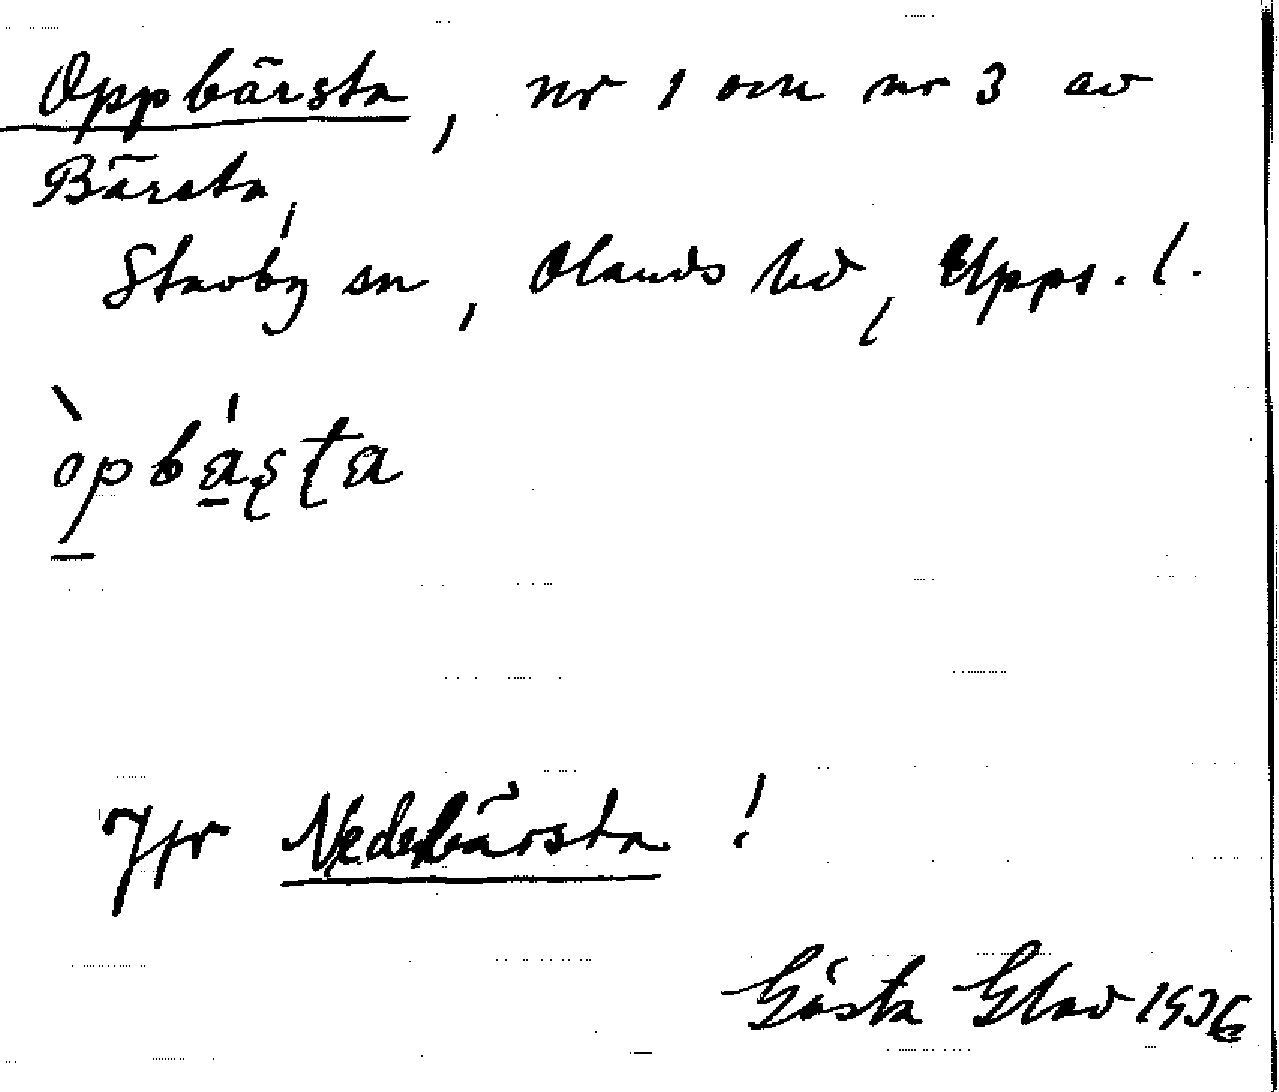 Oppbärsta, nr 1 och nr 3 av
Bärsta,
Stavby sn, Olands hd, Upps. l.
òpbásta
Jfr Nederbärsta!
Gösta Glad 1936